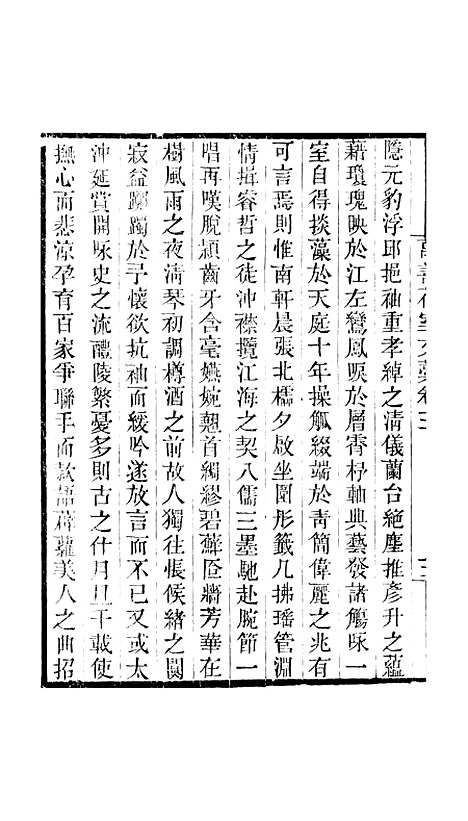 隱元豹浮邱挹袖重孝綽之清儀蘭台絕塵推彥升之蘊
藉瓊瑰映於江左鸞鳳唳於層霄杼軸典藝發諸觴咏一
室自得掞藻於天庭十年操觚綴端於靑簡偉麗之兆有
可言焉則惟南軒晨張北櫺夕啟坐圍彤籤几拂瑤管淵
情揖睿哲之徒沖襟攬江海之契八儒三墨馳赴腕節一
唱再嘆脫潁齒牙含毫嫵婉翹首綢繆碧蘚匝牆芳華在
樹風雨之夜淸琴初調樽酒之前故人獨往悵候緒之闃
寂益躑躅於予懷欲抗袖而緩吟遂放言而不已又或太
沖延賞開咏史之流醴陵繁憂多則古之什月旦千載使
撫心而悲涼孕育百家爭聯手而款語薜蘿美人之曲招